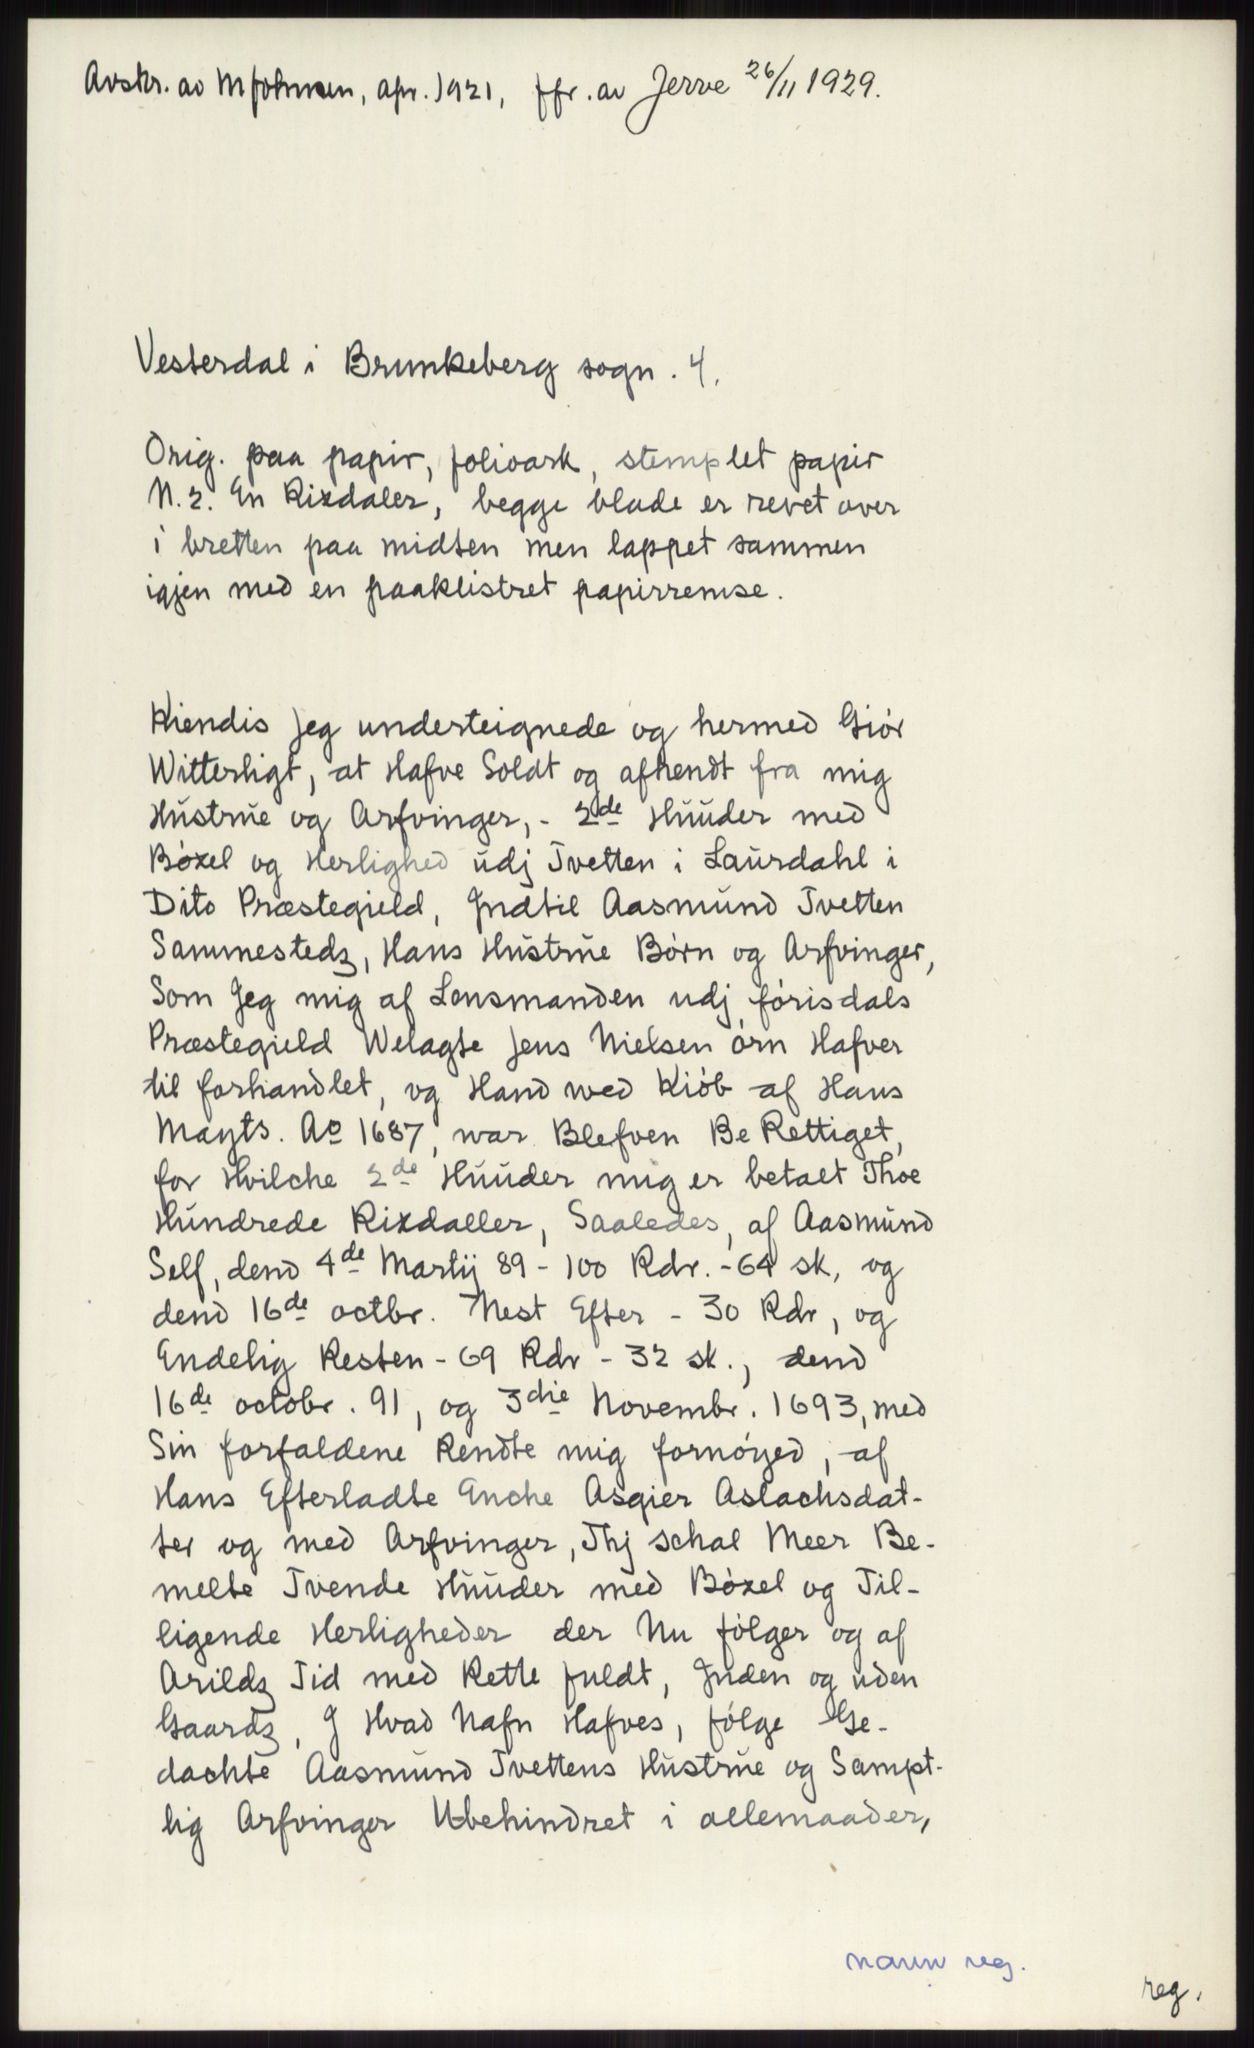 Avskr. av M Johnsen, apr. 1921, jfr. av Jerve 26/11 1929.
Vesterdal i Brunkeberg sogn. 4.
Orig. paa papir, folioark, stemplet papir
N. 2. En Rixdaler, begge blade er revet over
i bretten paa midten men lappet sammen
igjen med en paaklistret papirremse.
Kiendis Jeg underteignede og hermed Giór
Witterligt, at Hafve Soldt og afhendt fra mig
Hústrúe og Arfvinger, - 2de Húúder med
Bóxel og Herlighed údj Tvetten i Laúrdahl i
Dito Præstegield, Jndtil Aasmúnd Tvetten
Sammestedz, Hans Hústrúe Børn og Arfvinger,
Som Jeg mig af Lensmanden udj fórisdals
Præstegield Welagte Jens Nielsen órn Hafver
til forhandlet, og Hand wed Kiób af Hans
Mayts. Ao 1687, war Blefven Be Rettiget,
for Hvilche 2de Húúder mig er betalt Thoe
Húndrede Rixdaller, Saaledes, af Aasmúnd
Self, dend 4de Martij 89 - 100 Rdr. - 64 sk, og
dend 16de octbr. Nest Efter - 30 Rdr, og
Endelig Resten - 69 Rdr - 32 sk., dend
16de octobr. 91, og 3die Novembr. 1693, med
Sin forfaldene Rendte mig fornóyed, af
Hans Efterladte Enche Asgier Aslachsdat-
ter og med Arfvinger, Thj schal Meer Be-
melte Tvende Húúder med Bóxel og Til-
ligende Herligheder der Nu fólger og af
Arildz Tid med Rette fuldt, Jnden og úden
Gaardz, J Hvad Nafn Hafves, fólge Ge-
dachte Aasmúnd Tvettens Hústrúe og Sampt-
lig Arfvinger Ubehindret i allemaader,
navn reg.
reg.